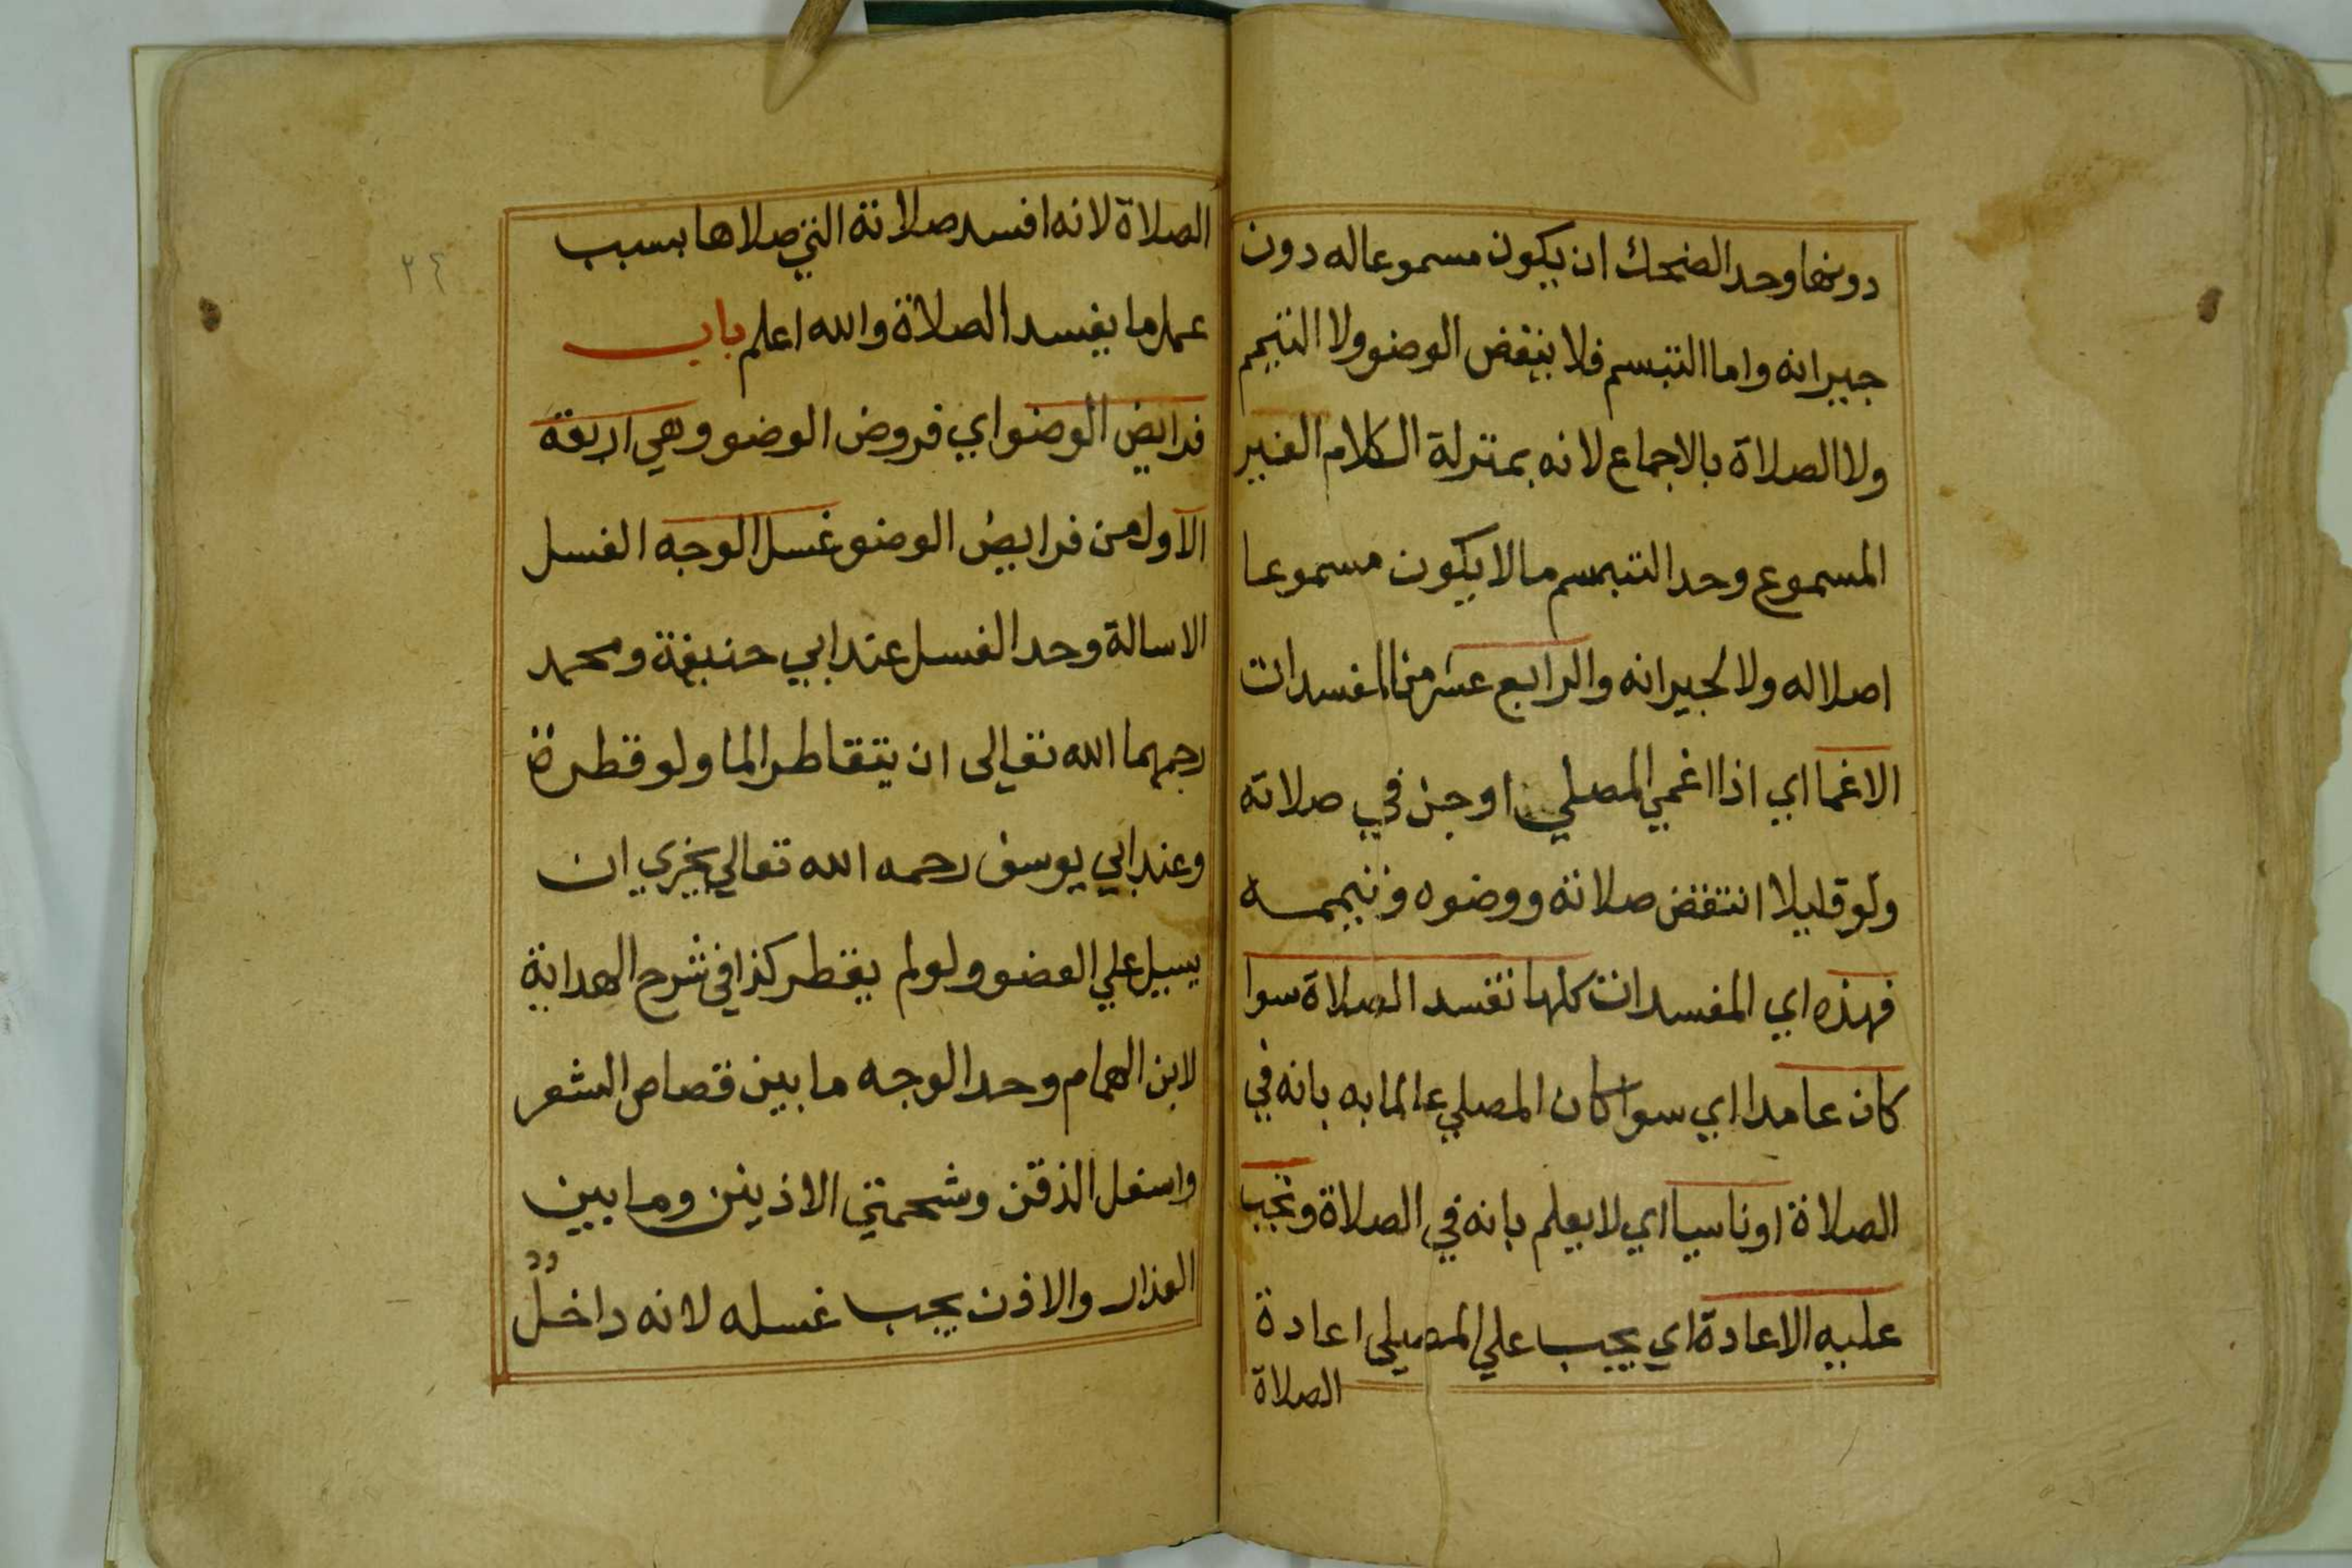 دونها وحد الضحك ان يكون مسموعا له دون
جيرانه واما التبسم فلا ينقض الوضو ولا التيمم
ولا الصلاة بالاجماع لانه بمنزلة الكلام الغير
المسموع وحد التبسم ما لا يكون مسموعا
اصلا له ولا لجيرانه والرابع عشر من المفسدات
الاغما اي اذا اغمي المصلي او جن في صلاته
ولو قليلا انتقض صلاته ووضوه وتيممه
فهذه اي المفسدات كلها تفسد الصلاة سوا
كان عامدا اي سوا كان المصلي عالما به بانه في
الصلاة او ناسيا اي لا يعلم بانه في الصلاة وتجب
عليه الاعادة اي يجب علي المصلي اعادة
الصلاة
٢٤
الصلاة لانه افسد صلاته التي صلاها بسبب
عمل ما يفسد الصلاة والله اعلم باب
فرايض الوضو اي فروض الوضو وهي اربعة
الاول من فرايض الوضو غسل الوجه الغسل
الاسالة وحد الغسل عند ابي حنيفة ومحمد
رحمهما الله تعالى ان يتقاطر الما ولو قطرة
وعند ابي يوسف رحمه الله تعالي يجزي ان
يسيل علي العضو ولو لم يقطر كذا في شرح الهداية
لابن الهمام وحد الوجه ما بين قصاص الشعر
واسفل الذقن وشحمتي الاذنين وما بين
العذار والاذن يجب غسله لانه داخل